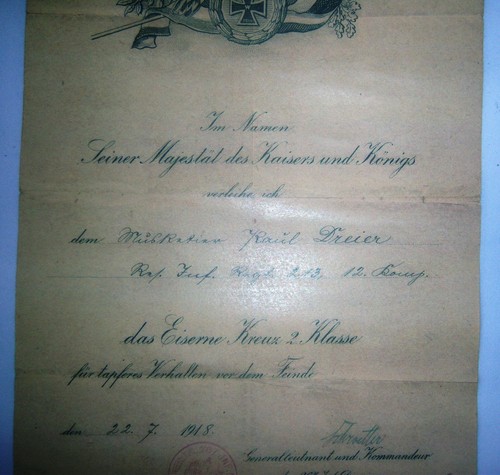 Im Namen
Seiner Majestät des Kaisers und Königs
verleihe ich
dem Musketier Paul Dreier
Res. Inf. Regt. 213, 12. Komp.
das Eiserne Kreuz 2. Klasse
für tapferes Verhalten vor dem Feinde
den 22. 7. 1918.
Generalleutnant und Kommandeur